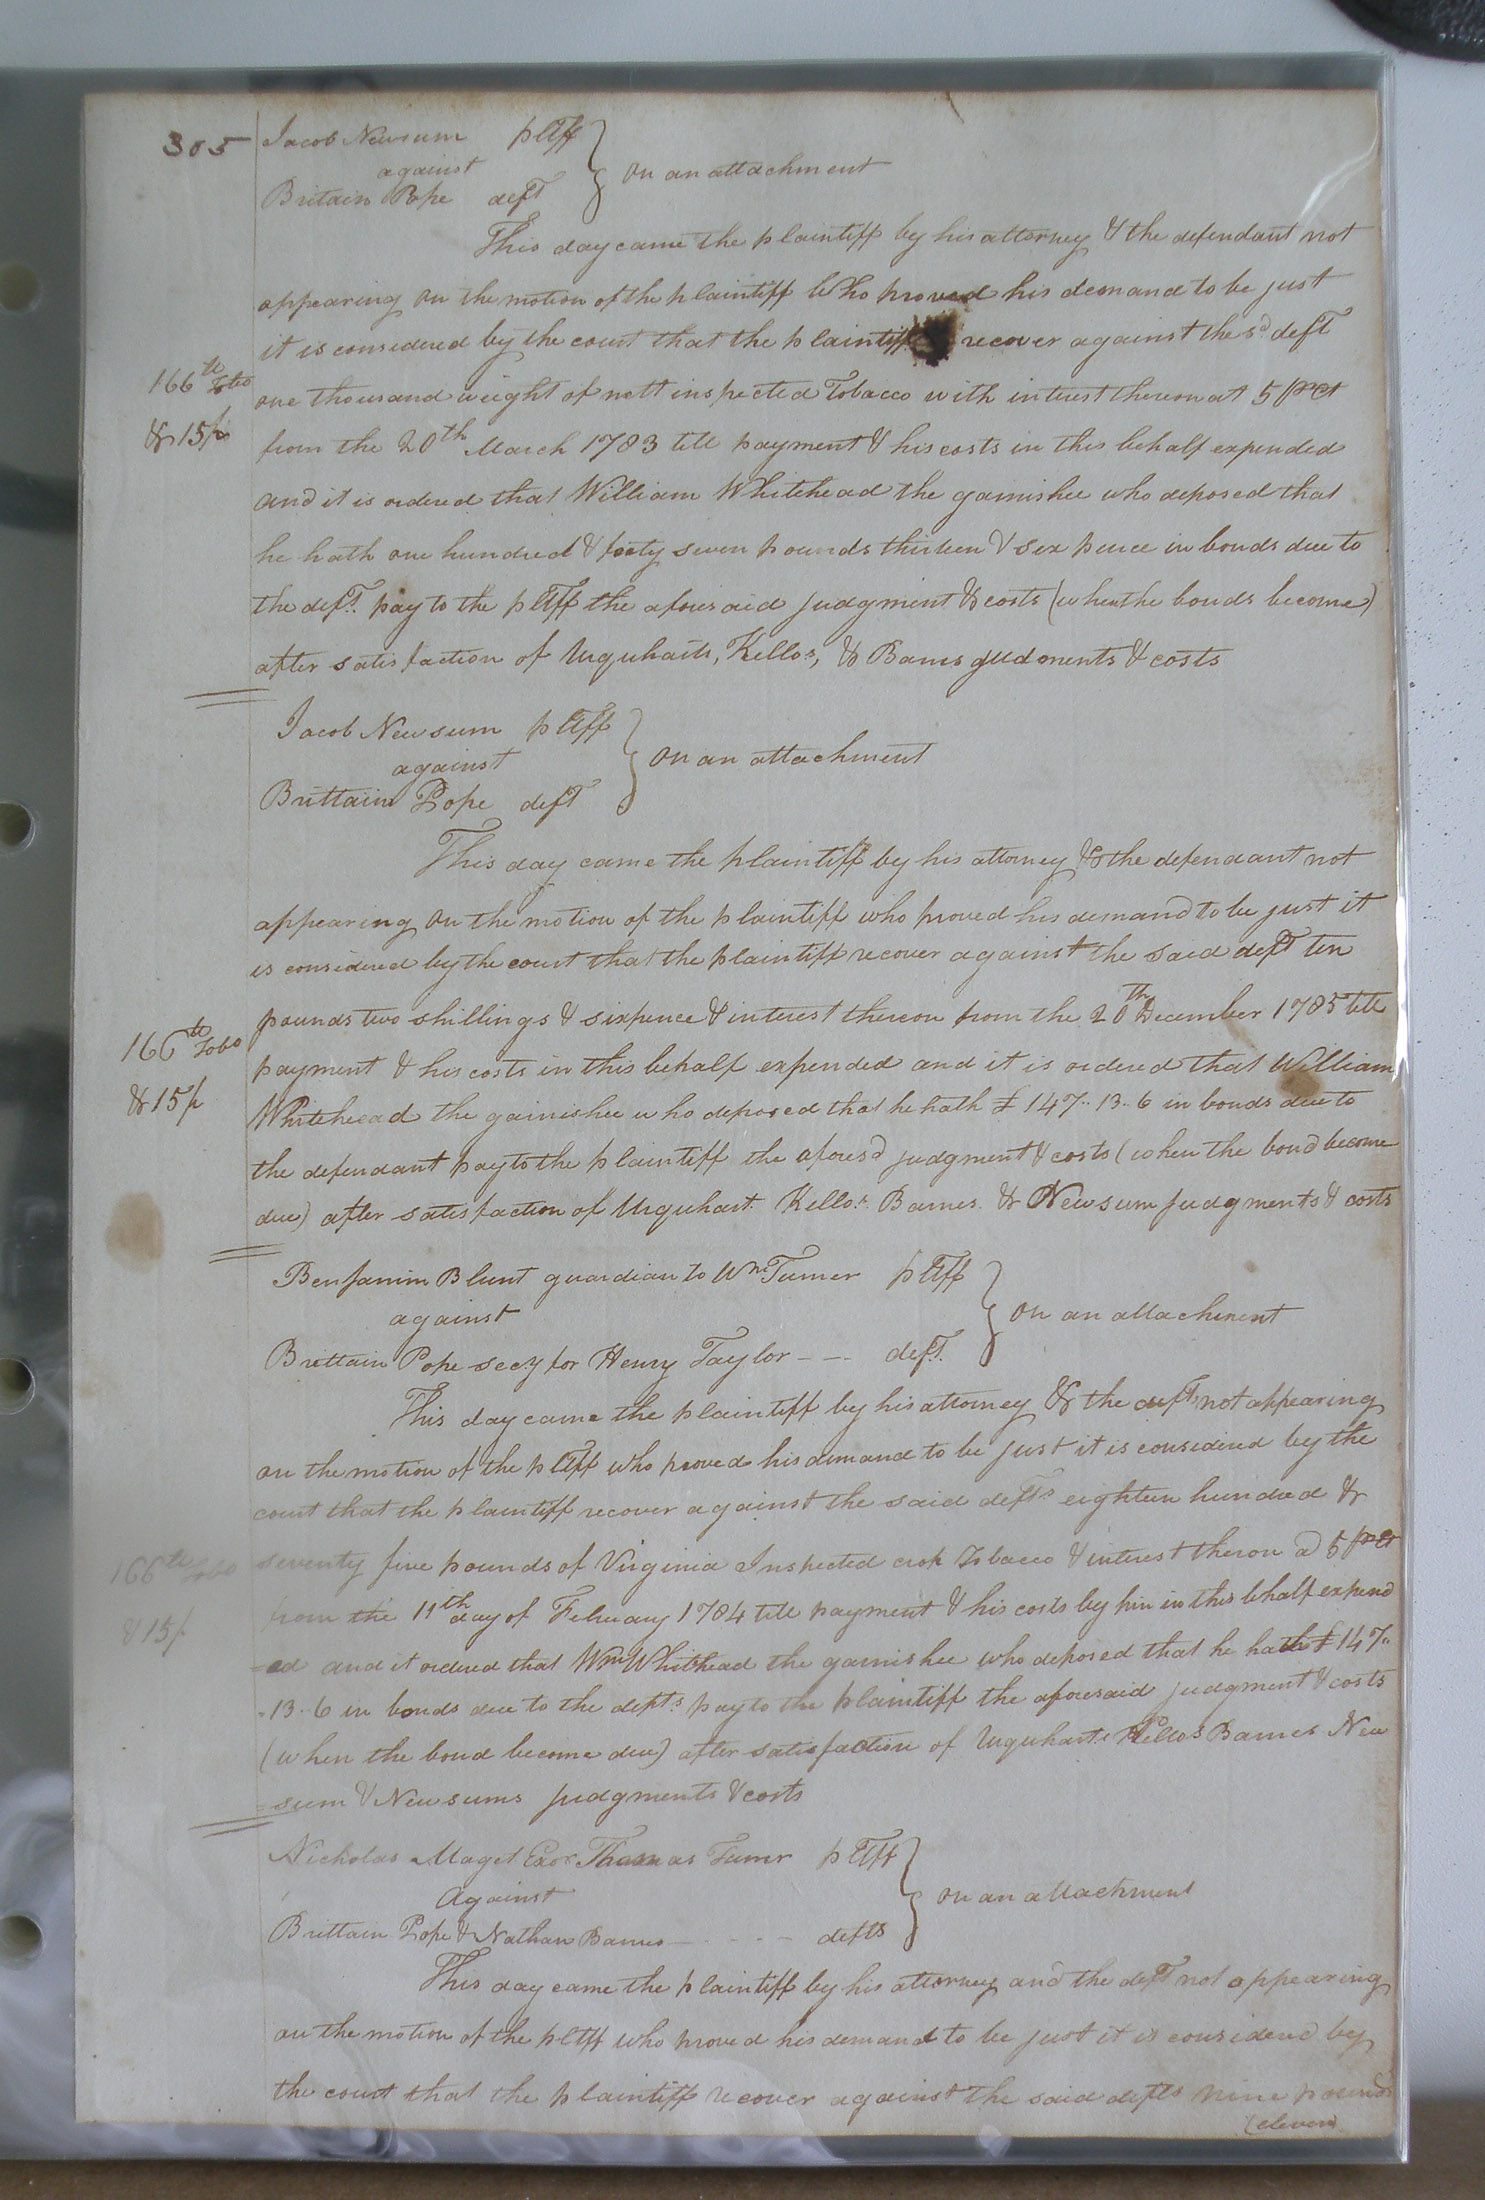 305
Jacob Newsum pltff
against
on an attachment
Britain Pope deft
This day came the plaintiff by his attorney & the defendant not
appearing on the motion of the plaintiff Who proved his demand to be just
it is considered by the court that the plaintiff recover against the sd deft
166 te Tobo
one thousand weight of nett inspected Tobacco with interest thereon at 5 prct
& 15/p
from the 20th March 1783 till payment & his costs in this behalf expended
and it is ordered that William Whitehead the garnishee who deposed that
he hath one hundred & forty seven pounds thirteen & six pence in bonds due to
the deft. pay to the pltff the aforesaid judgment & costs (when the bonds become)
after satisfaction of Urquharts, Kellos, & Barnes judments & costs
Jacob Newsum pltff
against
on an attachment
Brittain Pope deft
This day came the plaintiff by his attorney & the defendant not
appearing on the motion of the plaintiff who proved his demand to be just it
is considered by the court that the plaintiff recover against the said deft ten
pounds two shillings & sixpence & interest thereon from the 20th December 1785 till
166 te Tobo
payment & his costs in this behalf expended and it is ordered that William
& 15/p
Whitehead the garnishee who deposed that he hath £ 147..13..6 in bonds due to
the defendant pay to the plaintiff the aforesd judgment & costs (when the bond become
due) after satisfaction of Urquhart. Kellos. Barnes. & Newsum judgments & costs
Benjamin Blunt guardian to Wm Turner pltff
against
on an attachment
Brittain Pope secy for Henry Taylor -- deft.
This day came the plaintiff by his attorney & the defts not appearing
on the motion of the pltff who proved his demand to be just it is considered by the
court that the plaintiff recover against the said defts eighteen hundred &
166 te Tobo
seventy five pounds of Virginia Inspected crop Tobacco & interest theron a 5 prct
& 15/
from the 11th day of February 1784 till payment & his costs by him in this behalf expend
=ed and it ordered that Wm Whithead the garnishee who deposed that he hath £ 147..
.13..6 in bonds due to the defts pay to the plaintiff the aforesaid judgment & costs
(when the bond become due) after satisfaction of Urquharts Kellos Barnes New
=sum & Newsums judgments & costs
Nicholas Maget Exor Thomas Turner pltff
Against
on an attachment
Brittain Pope & Nathan Barnes - - - - defts
This day came the plaintiff by his attorney and the deft not appearing
on the motion of the pltff who proved his demand to be just it is considered by
the court that the plaintiff recover against the said defts nine pounds
(eleven